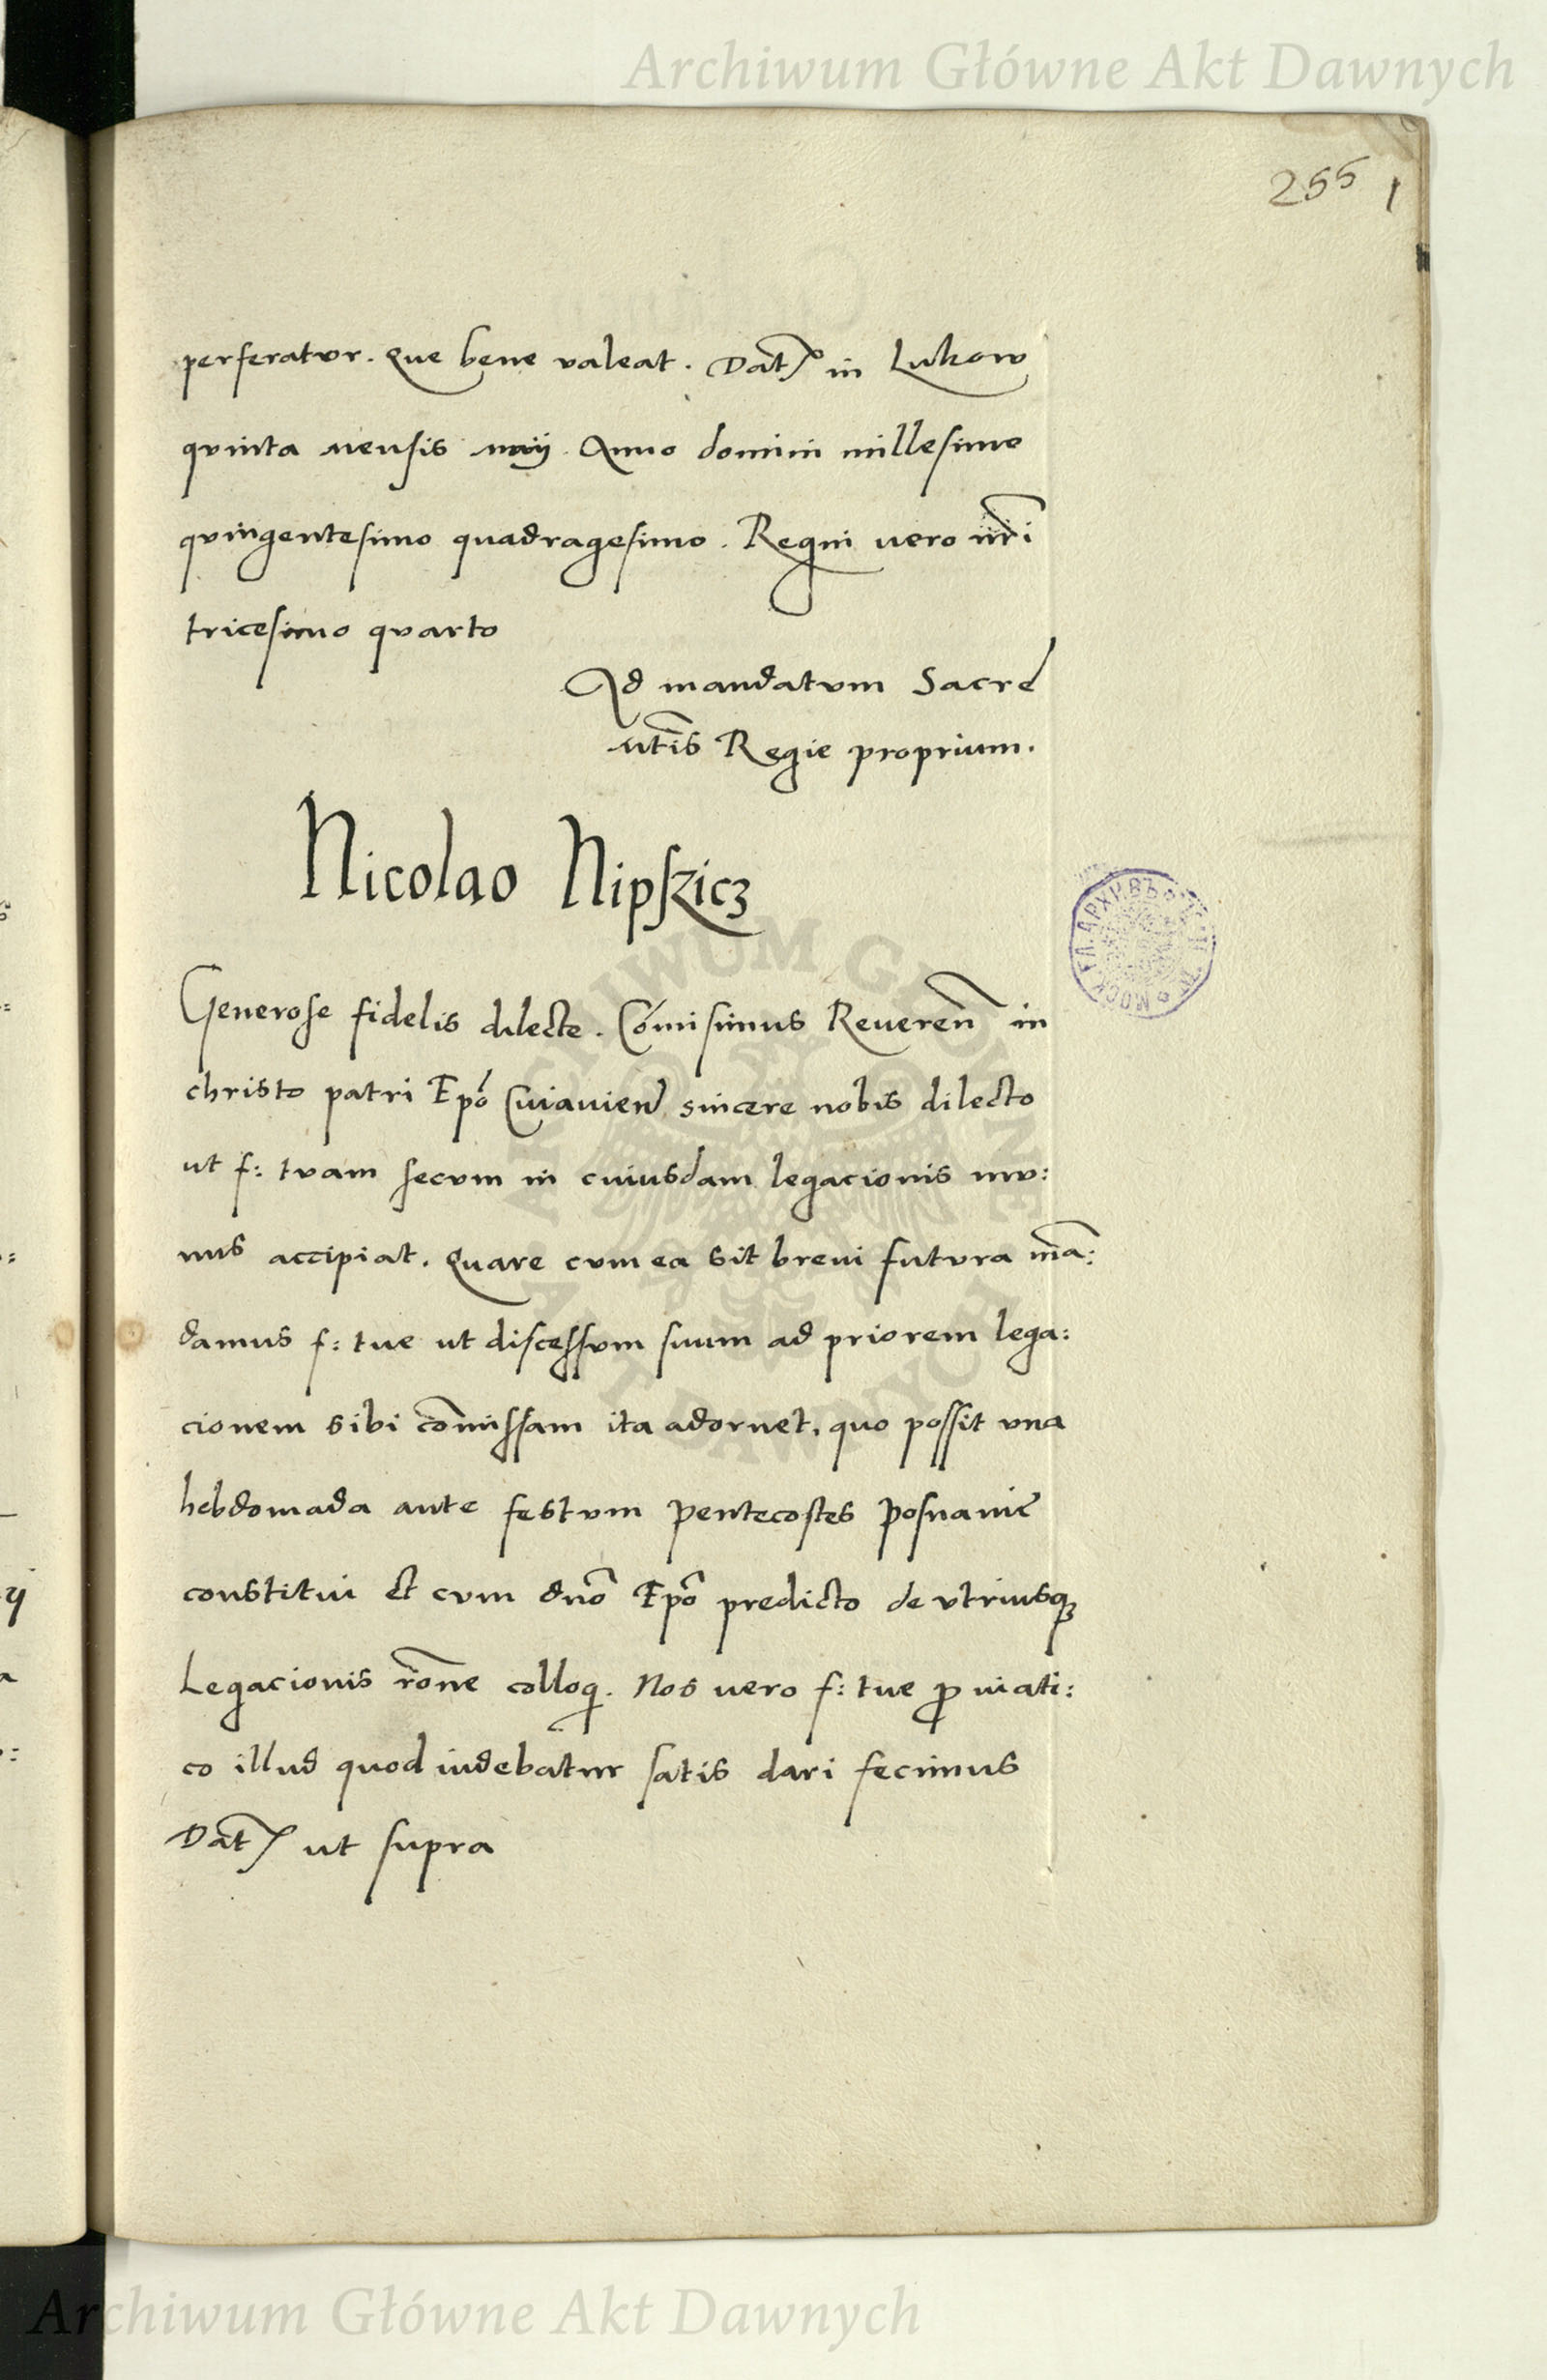 Archiwum Główne Akt Dawnych
255 1
perferatur. Que bene valeat. Dat̃ in Lukow
quinta mensis maij. Anno domini millesimo
quingentesimo quadragesimo. Regni vero nr̃i
tricesimo quarto
Ad mandatum Sacre
Mt̃is Regie proprium.
Nicolao Nipszicz
Generose fidelis dilecte. Cõmisimus Reueren̄ in
christo patri Epõ Cuiauien̄ sincere nobis dilecto
ut f: tuam secum in cuiusdam legacionis mu:
nus accipiat. Quare cum ea sit breui futura mã:
damus f: tue ut discessum suum ad priorem lega:
cionem sibi cõmissam ita adornet, quo possit una
hebdomada ante festum pentecostes Posnanie
constitui et cum dnõ Epõ predicto de utriusqꝫ
Legacionis rõne colloqi. Nos uero f: tue ꝓ uiati:
co illud quod uidebatur satis dari fecimus
Dat̃ ut supra
Archiwum Główne Akt Dawnych